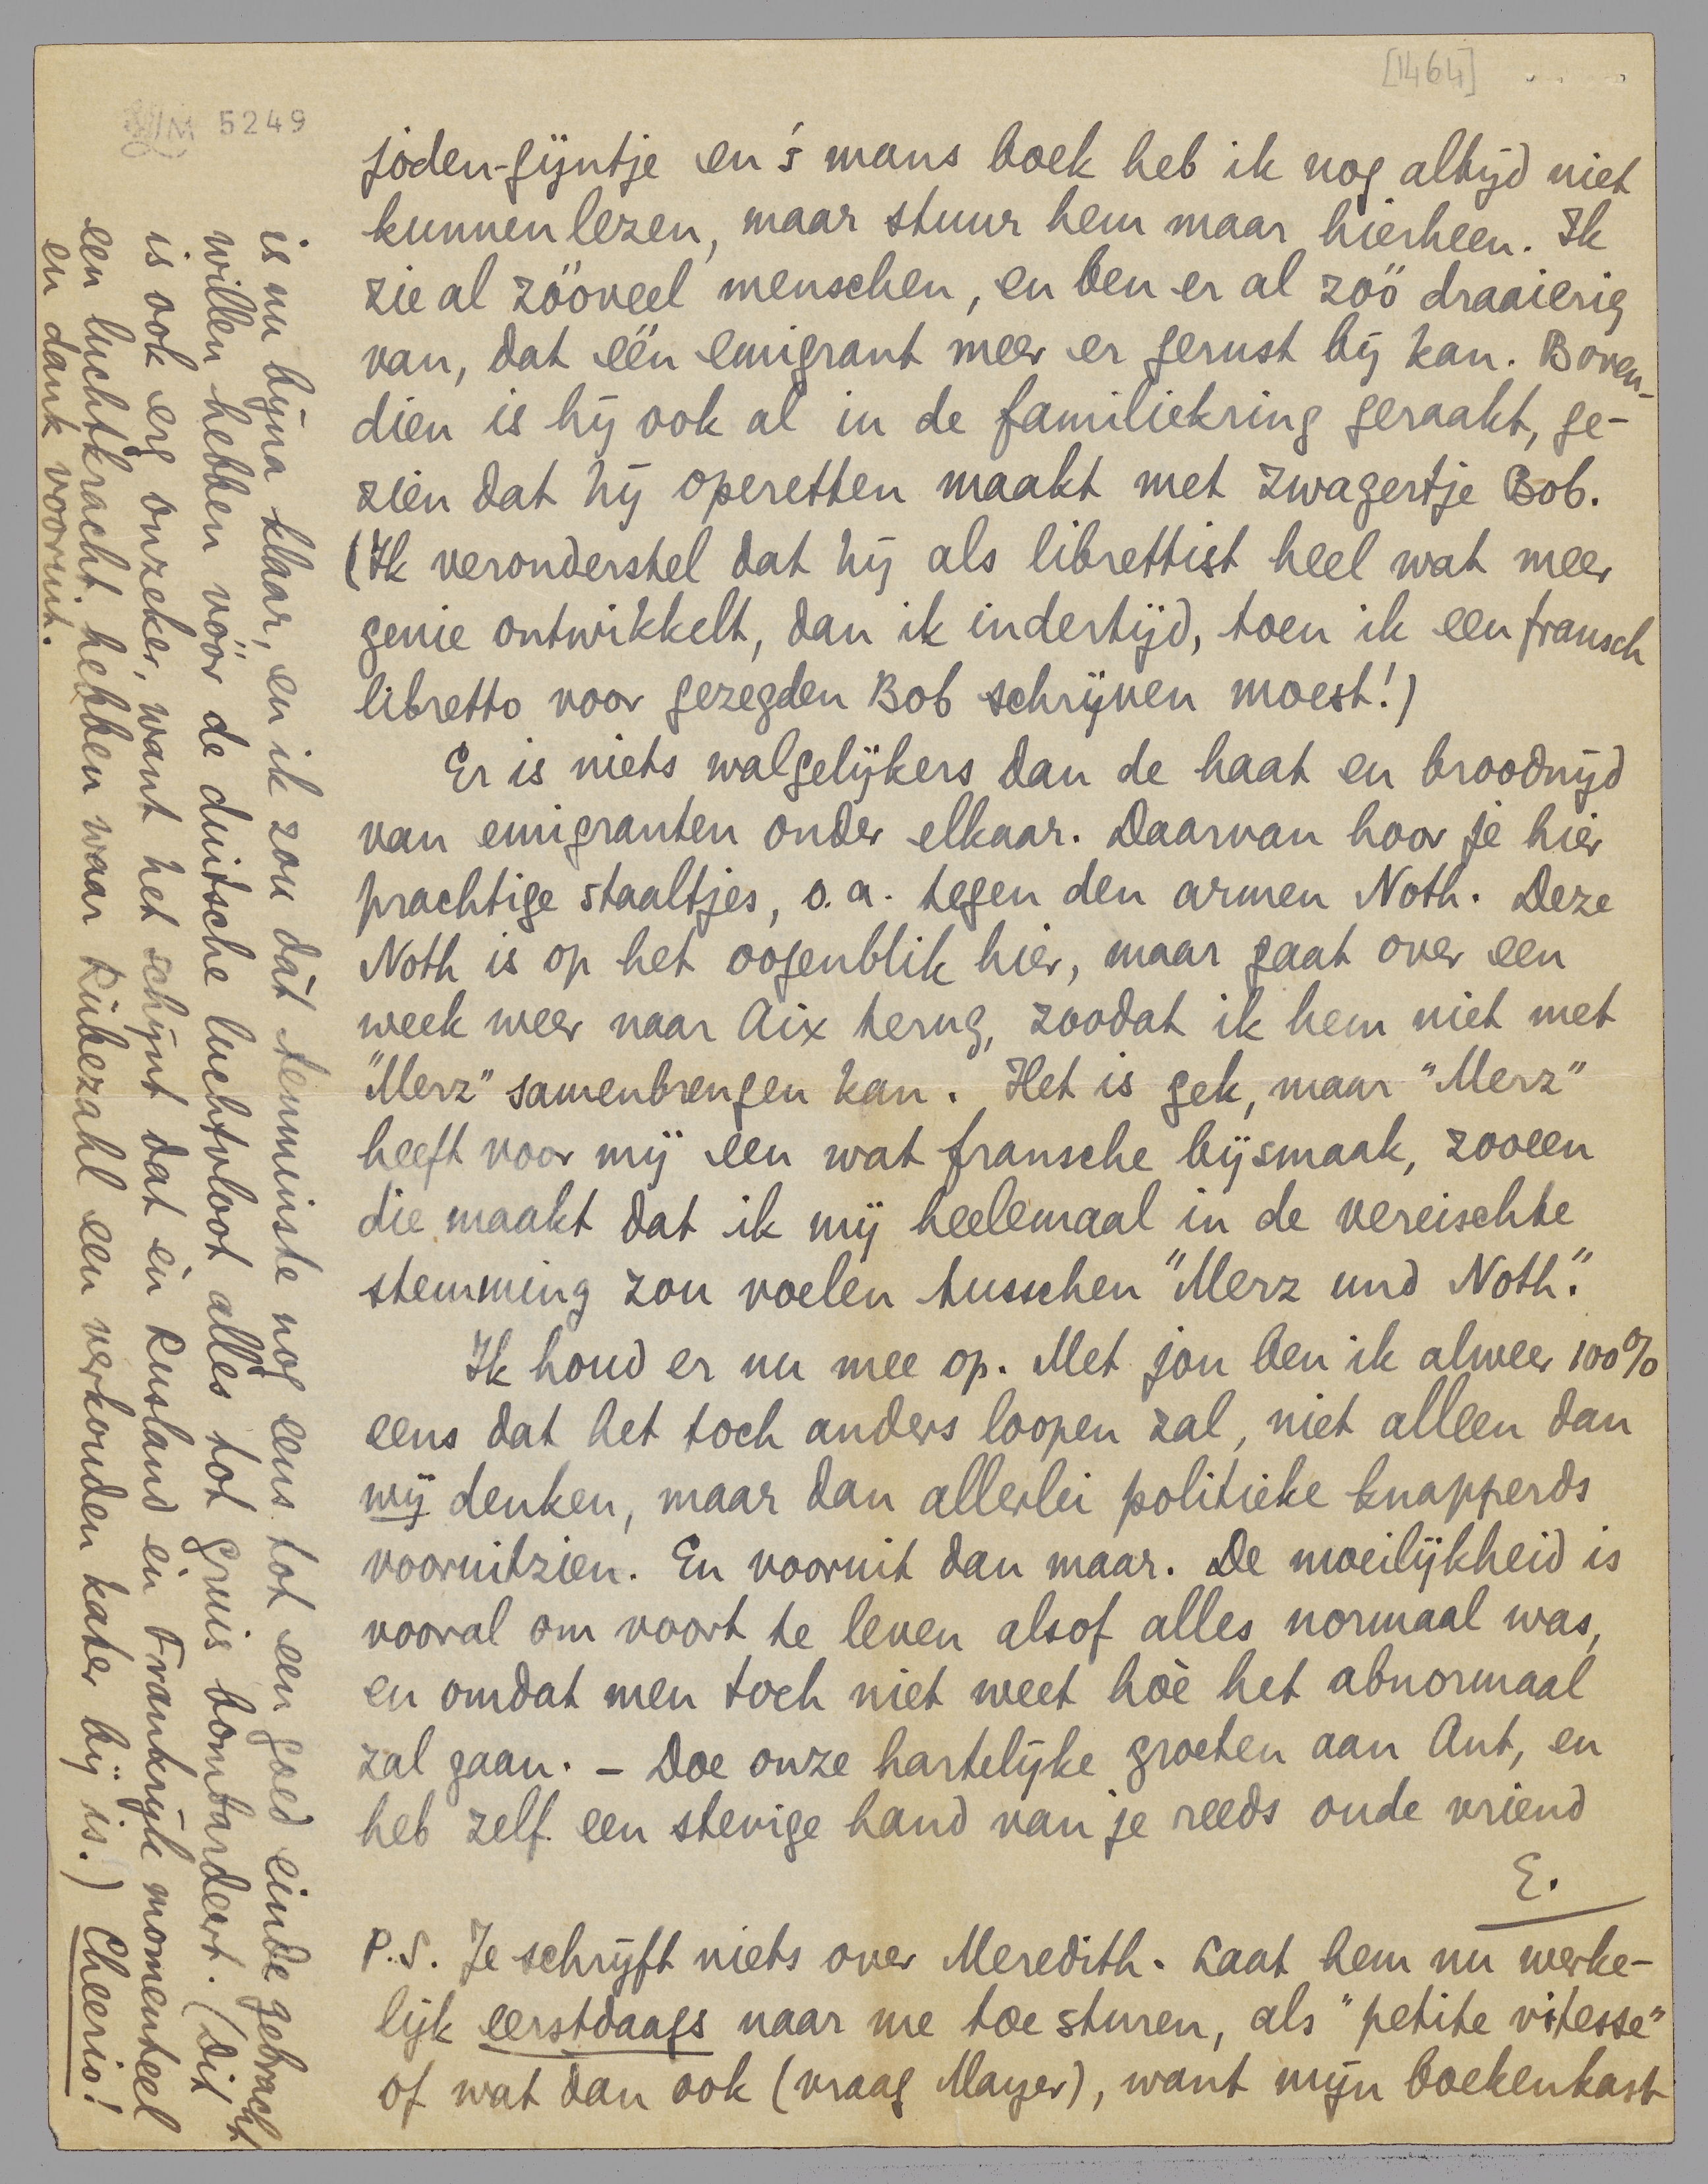 [1464]
LM 5249
joden-gijntje en 's mans boek heb ik nog altijd niet
kunnen lezen, maar stuur hem maar hierheen. Ik
zie al zóóveel menschen, en ben er al zóó draaierig
van, dat één emigrant meer er gerust bij kan. Boven-
dien is hij ook al in de familiekring geraakt, ge-
zien dat hij operetten maakt met zwagertje Bob.
(Ik veronderstel dat hij als librettist heel wat meer
genie ontwikkelt, dan ik indertijd, toen ik een fransch
libretto voor gezegden Bob schrijven moest!)
Er is niets walgelijkers dan de haat en broodnijd
van emigranten onder elkaar. Daarvan hoor je hier
prachtige staaltjes, o.a. tegen den armen Noth. Deze
Noth is op het oogenblik hier, maar gaat over een
week weer naar Aix terug, zoodat ik hem niet met
"Merz" samenbrengen kan. Het is gek, maar "Merz"
heeft voor mij een wat fransche bijsmaak, zooeen
die maakt dat ik mij heelemaal in de vereischte
stemming zou voelen tusschen "Merz und Noth".
Ik houd er nu mee op. Met jou ben ik alweer 100%
eens dat het toch anders loopen zal, niet alleen dan
wij denken, maar dan allerlei politieke knapperds
vooruitzien. En vooruit dan maar. De moeilijkheid is
vooral om voort te leven alsof alles normaal was,
en omdat men toch niet weet hoè het abnormaal
zal gaan. – Doe onze hartelijke groeten aan Ant, en
heb zelf een stevige hand van je reeds oude vriend
E.
P.S. Je schrijft niets over Meredith. Laat hem nu werke-
lijk eerstdaags naar me toe sturen, als "petite vitesse"
of wat dan ook (vraag Mayer), want mijn boekenkast
is nu bijna klaar, en ik zou dàt tenminste nog eens tot een goed einde gebracht
willen hebben vóór de duitsche luchtvloot alles tot gruis bombardeert. (Dit
is ook erg onzeker, want het schijnt dat èn Rusland èn Frankrijk momenteel
een luchtkracht hebben waar Rübezahl een verkouden kater bij is.) Cheerio!
en dank vooruit.